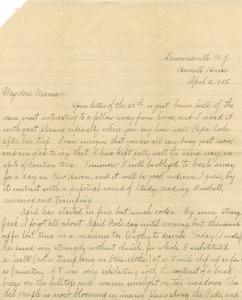 Lawrenceville N.J.
Hamill House
April 2, 1905
My dear Mama:-
Your letter of the 28th is just brim full of the
news most interesting to a fellow away from home, and I read it
with great pleasure, especially where you say how well Papa looks
after his trip. I can imagine that you are all very busy just now,
and am glad to say that I have kept fairly well the same way, in
spite of vacation time. Tomorrow I will be obliged to break away
for a day in New Haven, and it will be good medicine, I guess, by
its contrast with a perpetual round of study, reading, baseball,
running and
April has started in fine but much cooler. By some strange
I forgot all about April Fools day until evening, but then
up for lost time in a manner too to describe. Today I
has passed very strangely without church, for which I substituted
a walk
as Princeton. It was very exhilarating with the contrast of a brisk
breeze on the hilltops and warm sunlight on the meadows. The
Maple is now blooming in many places along the